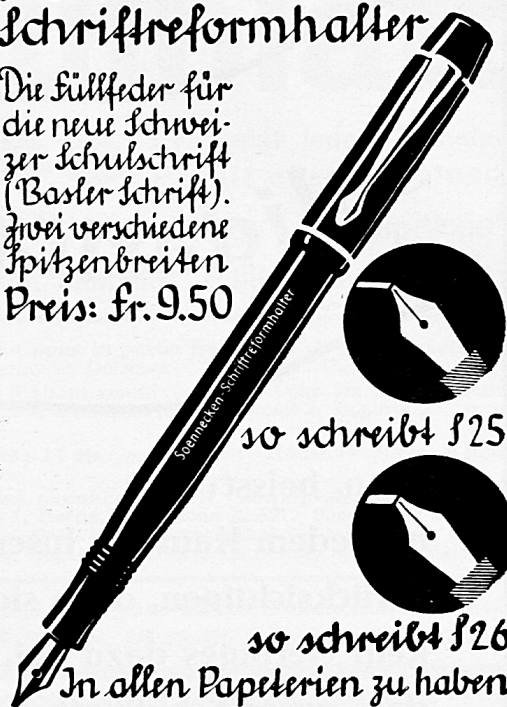 Schriftreformhalter
Die Füllfeder für
die neue Schwei-
zer Schulschrift
(Basler Schrift).
Zwei verschiedene
Spitzenbreiten
Preis: Fr. 9.50
Soennecken-Schriftreformhalter
so schreibt S 25
so schreibt S 26
In allen Papeterien zu haben